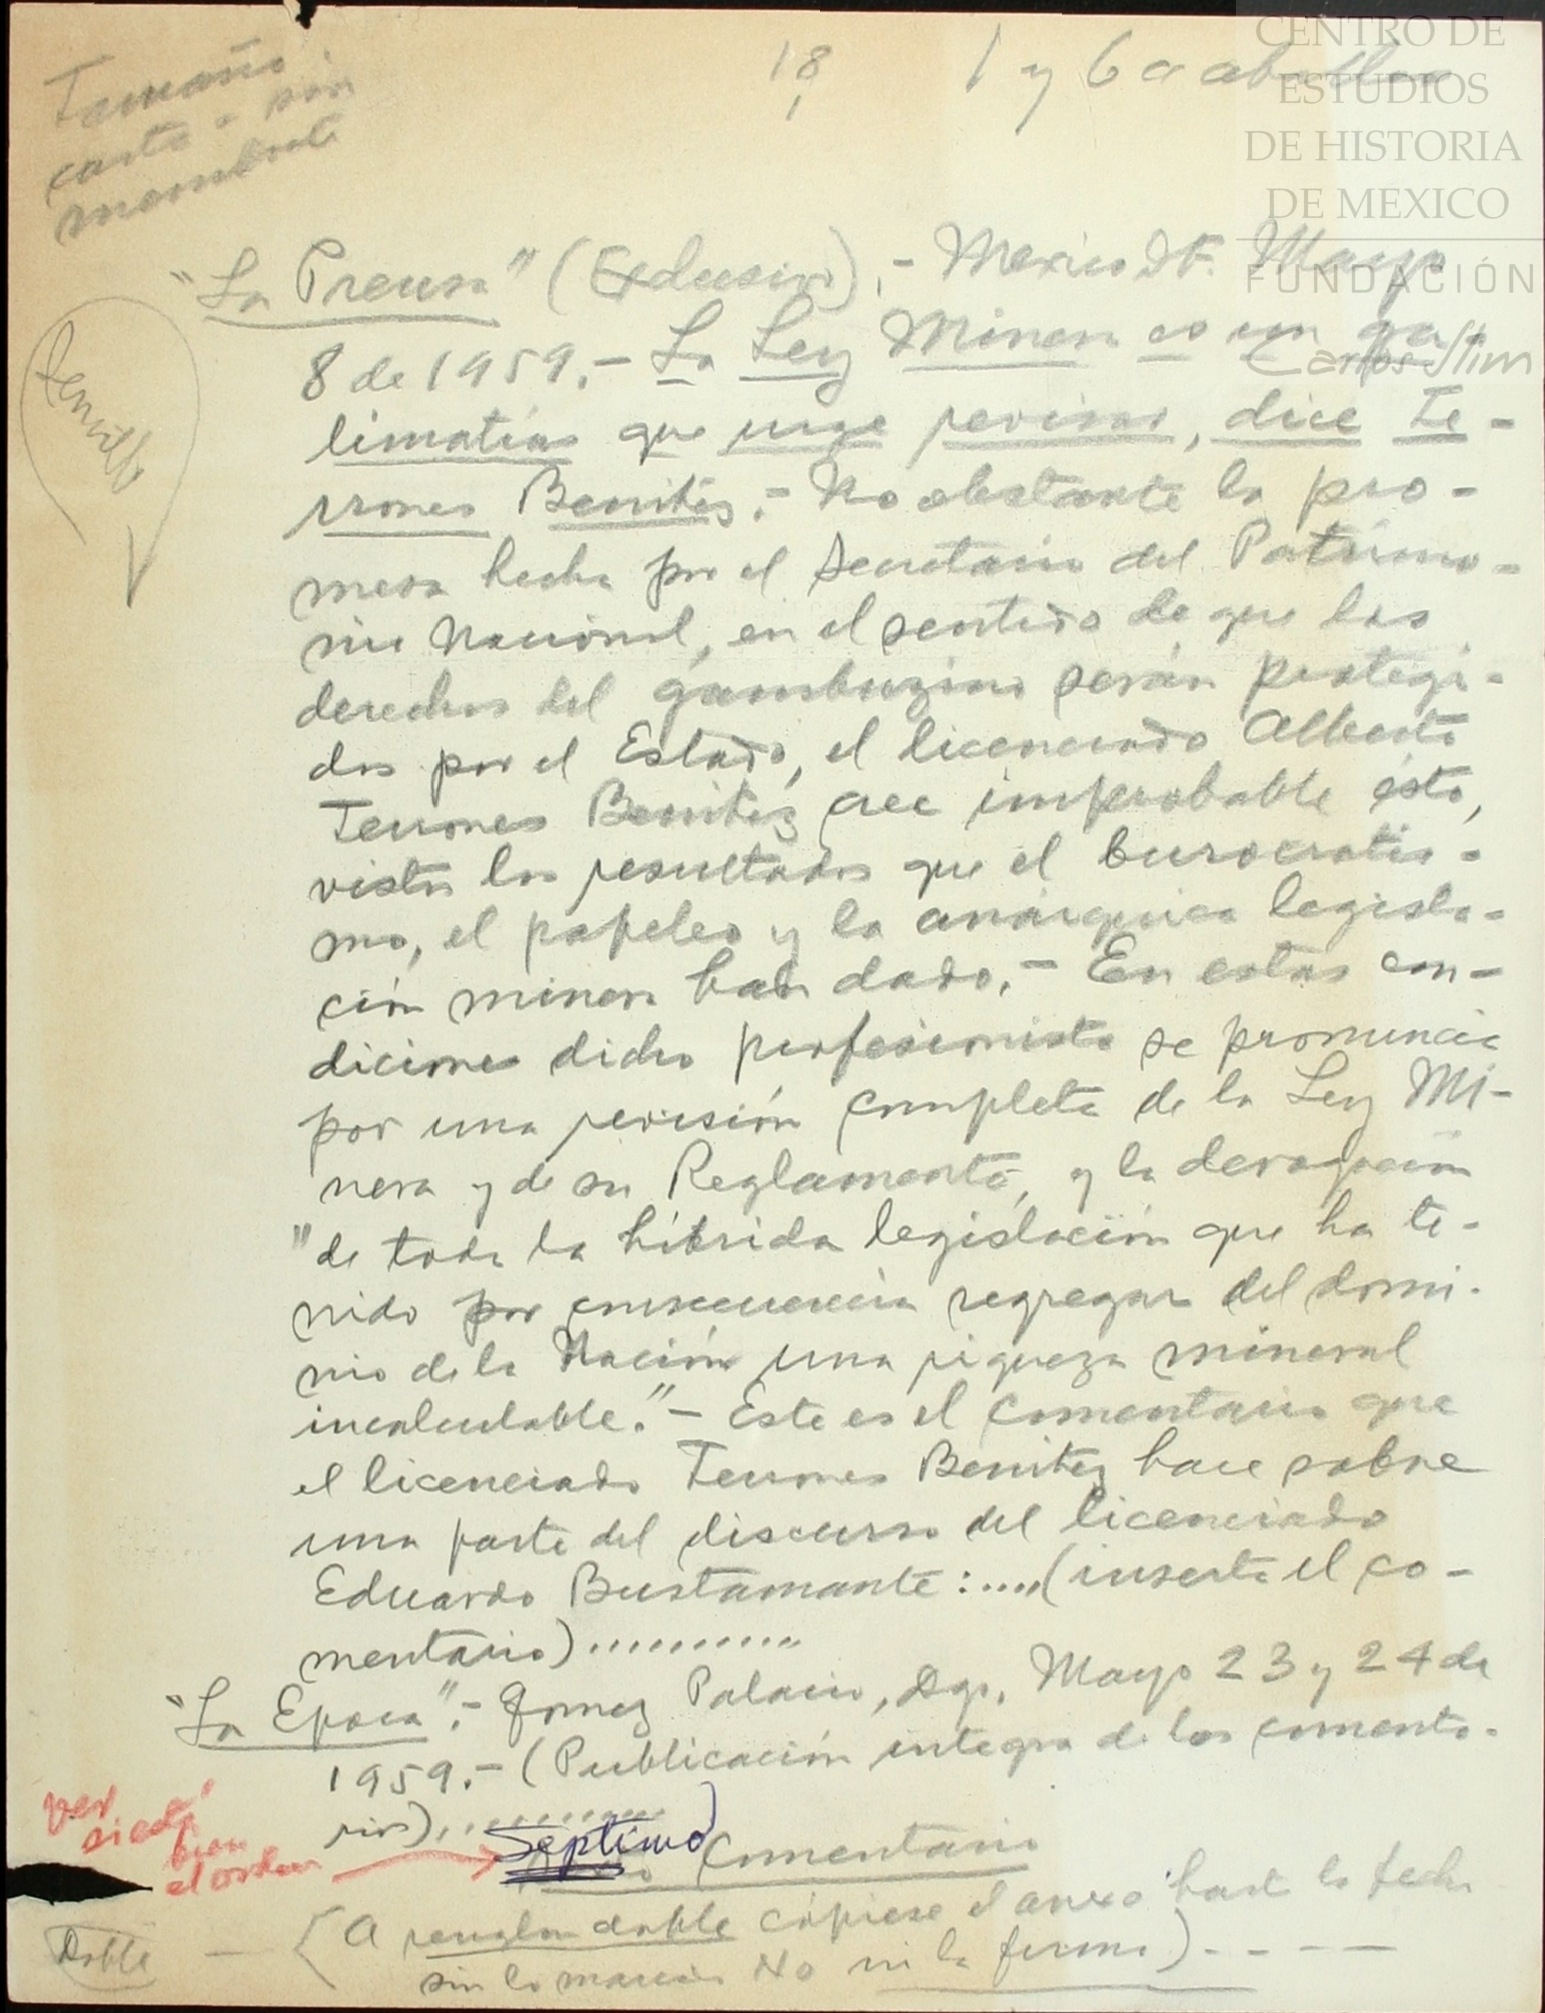 CENTRO DE
ESTUDIOS
DE HISTORIA
DE MEXICO
FUNDACIÓN
Carlos Slim
Tamaño
carta - sin
membrete
18
1 y 6 a
"La Prensa" (Exclusivo).- Mexico D.F. Mayo
8 de 1959.- La Ley Minera es un ga-
limatías que urge revisar, dice Te-
rrones Benitez.- No obstante la pro-
mesa hecha por el Secretario del Patrimo-
nio Nacional, en el sentido de que los
derechos del gambuzino serán protegi-
dos por el Estado, el licenciado Alberto
Terrones Benitez cree improbable ésto,
vistos los resultados que el burocratis-
mo, el papeleo y la anárquica legisla-
ción minera han dado.- En estas con-
diciones dicho profesionista se pronuncia
por una revisión completa de la Ley Mi-
nera y de su Reglamento, y la derogación
"de toda la híbrida legislación que ha te-
nido por consecuencia segregar del domi-
nio de la Nación una riqueza mineral
incalculable."- Este es el comentario que
el licenciado Terrones Benitez hace sobre
una parte del discurso del licenciado
Eduardo Bustamante:....(inserta el co-
mentario)..........
"La Epoca".- Gomez Palacio, Dgo, Mayo 23 y 24 de
1959.- (Publicación integra de los comenta-
rios)..........
ver
si está
bien
el orden
Septimo Comentario
Doble
(A renglon doble cópiese el anexo hasta la fecha
sin lo marcado No ni la firma)-----